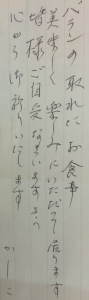 バランの取れた お食事
美味しく 楽しみにいただいて居ります
皆様 ご自愛 なさいますよう
心から御祈りいたします
かしこ